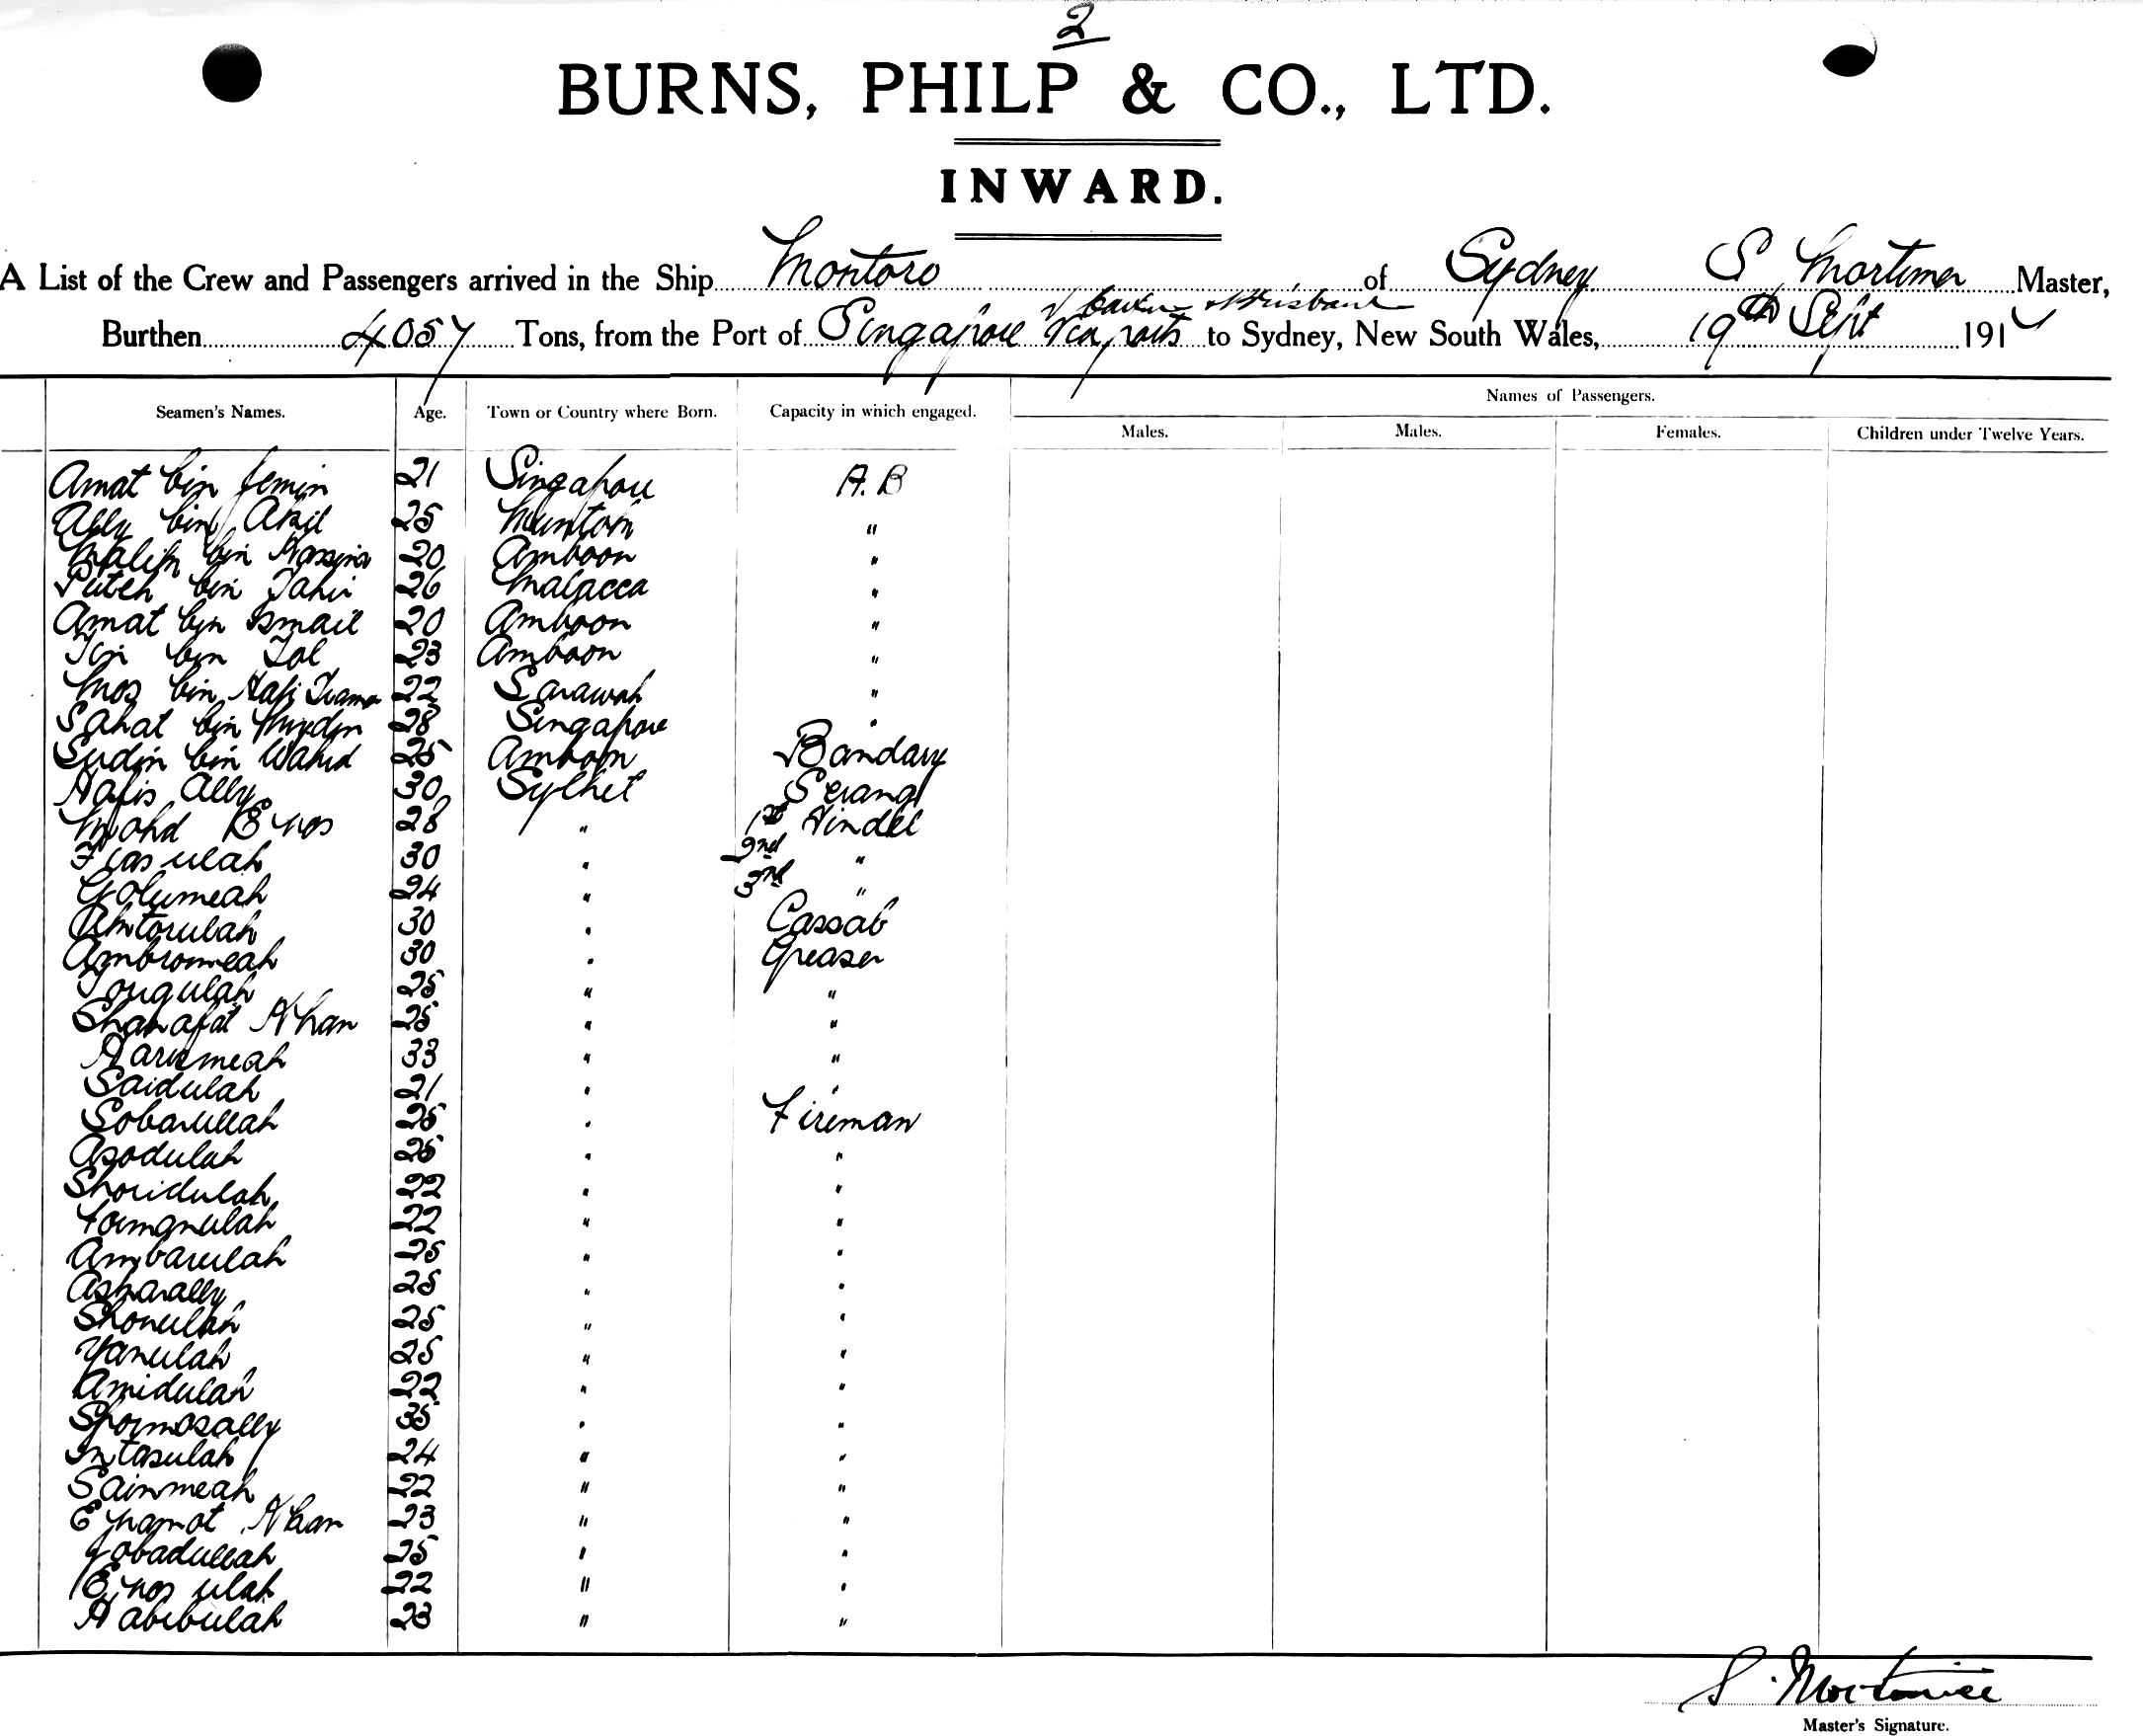 2
BURNS, PHILP & CO., LTD.
INWARD.
A List of the Crew and Passengers arrived in the Ship Montoro of Sydney S Mortimer Master,
Brisbane
Burthen 4057 Tons, from the Port of Singapore via ports to Sydney, New South Wales, 19th Sept 1914
Names of Passengers.
Seamen's Names. Age. Town or Country where Born. Capacity in which engaged. Males. Males. Females. Children under Twelve Years.
Amat bin Jemin 21 Singapore A.B
Ally bin Akil 25 "
bin 20 Amboon "
Puteh bin Tahir 26 Malacca "
Amat bin Ismail 20 Amboon "
bin 23 Amboon "
bin 22 Sarawak "
Sahat bin 28 Singapore "
Sudin bin Wahid 25 Amboon Bandary
Hafis Ally 30 Sylhet Serang
Mohd 28 " 1st Tindel
30 " 2nd "
Golumeah 24 " 3rd "
30 " Cassab
30 " Greaser
25 " "
Sharafat Khan 25 " "
33 " "
Saidulah 21 " "
Sobarullah 25 " Fireman
Asodulah 25 " "
Shoridulah 22 " "
22 " "
Ambarulah 25 " "
25 " "
25 " "
Yanulah 25 " "
Amidulah 22 " "
35 " "
Intasulah 24 " "
Sainmeah 22 " "
Khan 23 " "
Jobadullah 25 " "
22 " "
Habibulah 23 " "
S. Mortimer
Master's Signature.